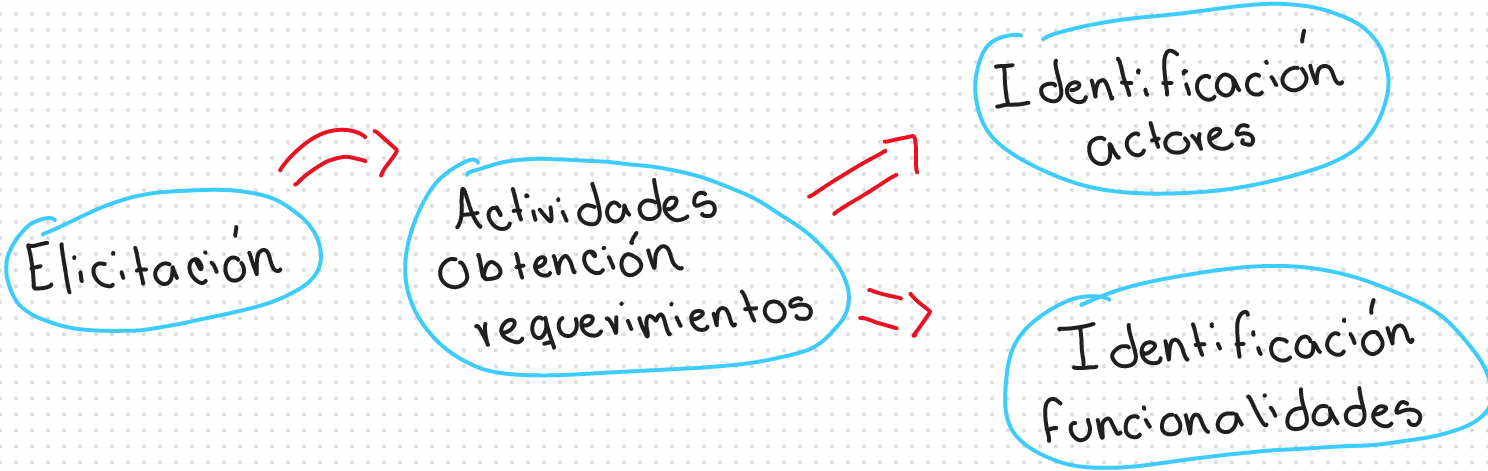 Elicitación
Actividades
obtención
requerimientos
Identificación
actores
Identificación
funcionalidades